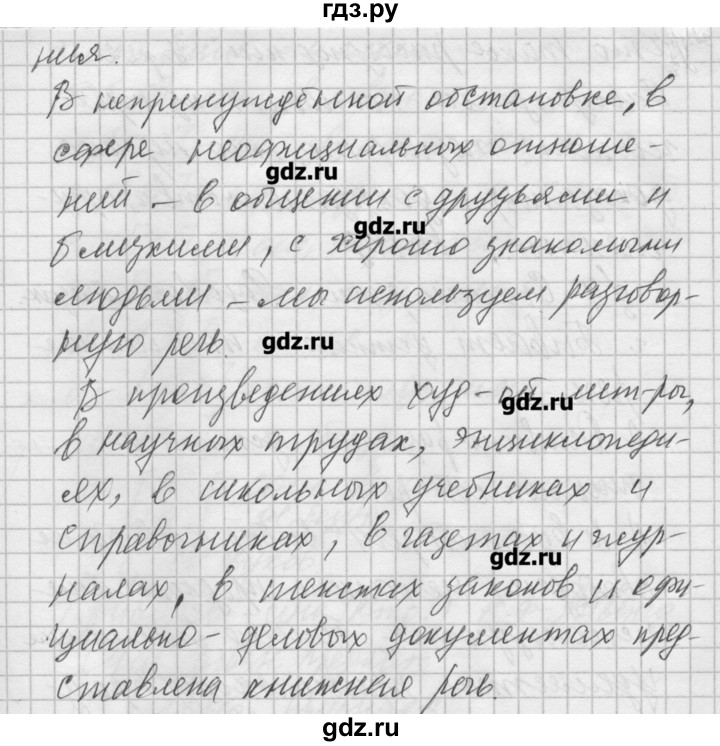 гдз.ру
ния.
В непринуждённой обстановке, в
сфере неофициальных отноше-
gdz.ru
ний – в общении с друзьями и
gdz.ru
близкими, с хорошо знакомыми
людьми – мы используем разговор-
ную речь.
gdz.ru
В произведениях худ-ой лит-ры,
gdz.ru
в научных трудах, энциклопеди-
ях, в школьных учебниках и
справочниках, в газетах и жур-
gdz.ru
налах, в текстах законов и офи-
циально-деловых документах пред-
ставлена книжная речь.
gdz.ru